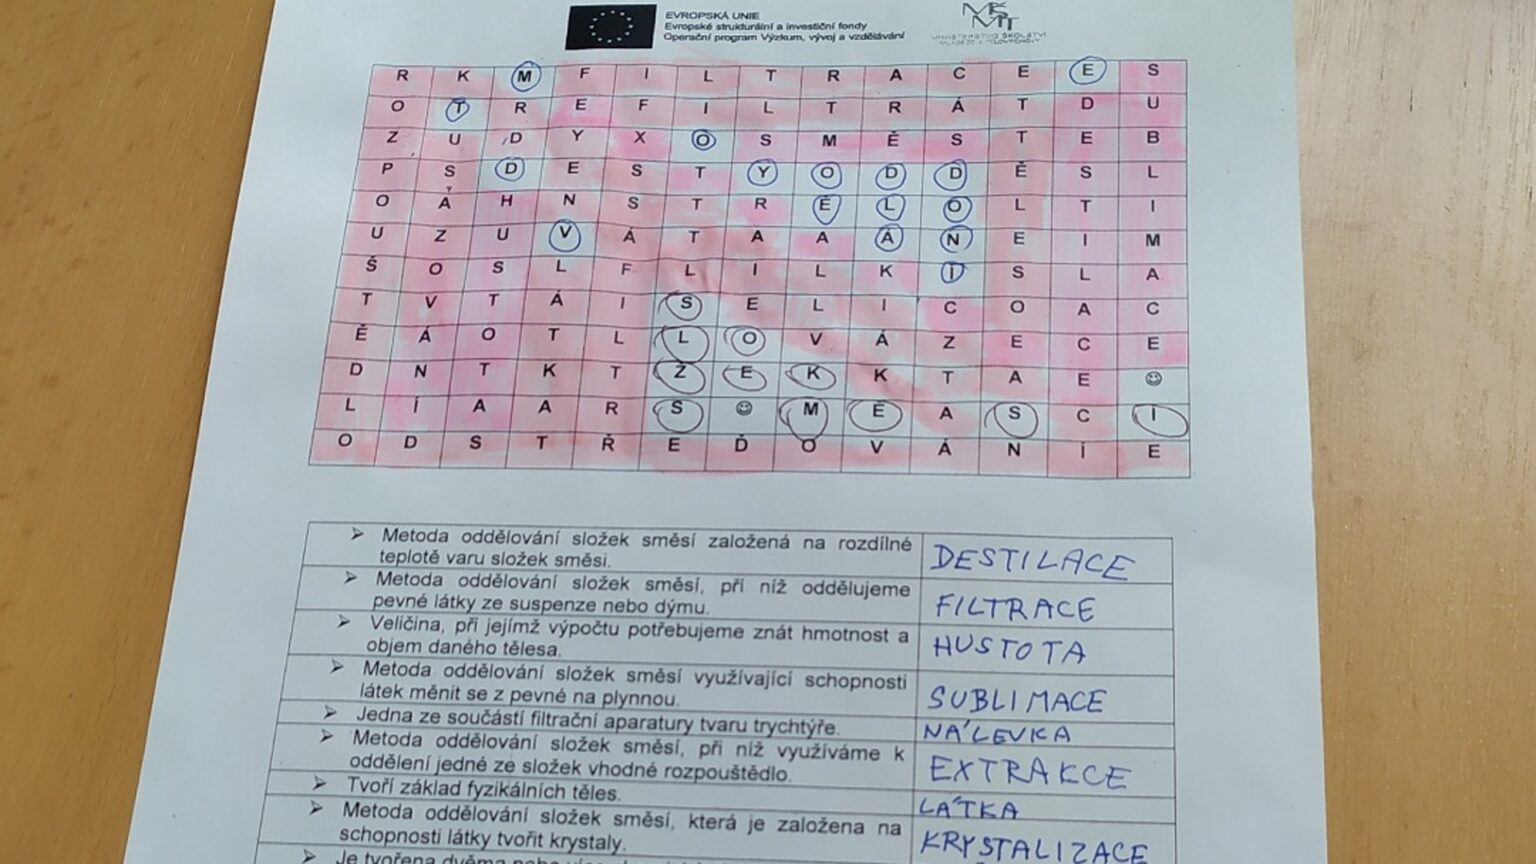 EVROPSKÁ UNIE
Evropské strukturální a investiční fondy
Operační program Výzkum, vývoj a vzdělávání
MINISTERSTVO ŠKOLSTVÍ,
MLÁDEŽE A TĚLOVÝCHOVY
R K M F I L T R A C E E S
O T R E F I L T R Á T D U
Z U D Y X O S M Ě S T E B
P S D E S T Y O D D Ě S L
O Á H N S T R Ě L O L T I
U Z U V Á T A A Á N E I M
Š O S L F L I L K Í S L A
T V T Á I S E L I C O A C
Ě Á O T L L O V Á Z E C E
D N T K T Ž E K K T A E ☺
L Í A A R S ☺ M Ě A S C I
O D S T Ř E Ď O V Á N Í E
➢ Metoda oddělování složek směsí založená na rozdílné DESTILACE
teplotě varu složek směsi.
➢ Metoda oddělování složek směsí, při níž oddělujeme FILTRACE
pevné látky ze suspenze nebo dýmu.
➢ Veličina, při jejímž výpočtu potřebujeme znát hmotnost a HUSTOTA
objem daného tělesa.
➢ Metoda oddělování složek směsí využívající schopnosti SUBLIMACE
látek měnit se z pevné na plynnou.
➢ Jedna ze součástí filtrační aparatury tvaru trychtýře. NÁLEVKA
➢ Metoda oddělování složek směsí, při níž využíváme k EXTRAKCE
oddělení jedné ze složek vhodné rozpouštědlo.
➢ Tvoří základ fyzikálních těles. LÁTKA
➢ Metoda oddělování složek směsí, která je založena na KRYSTALIZACE
schopnosti látky tvořit krystaly.
➢ Je tvořena dvěma nebo více